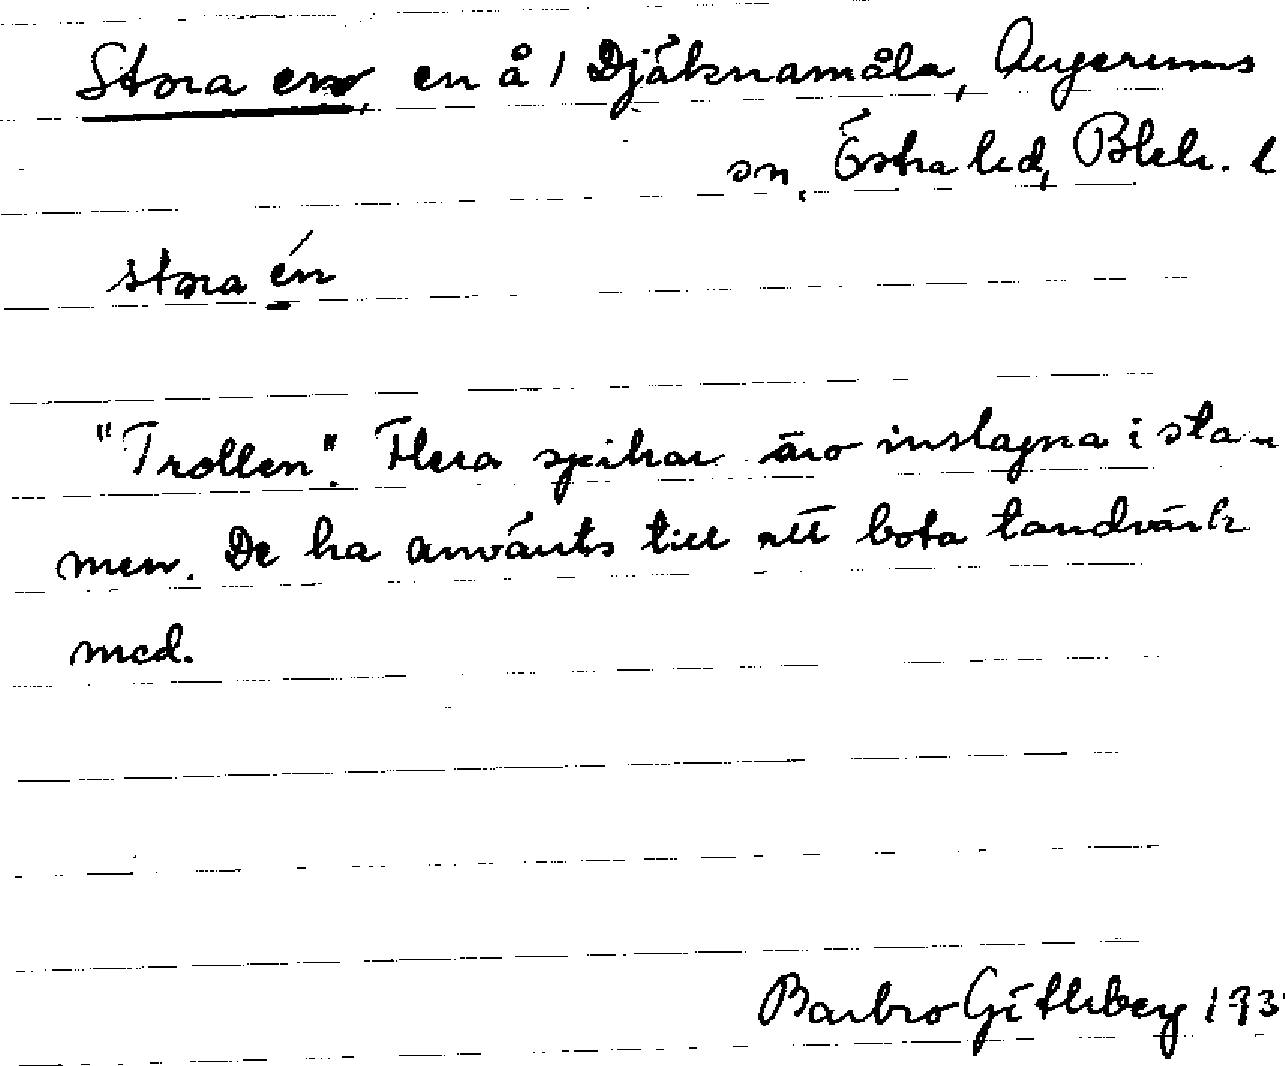 Stora en, en å 1 Djäknamåla, Augerums
sn, Östra hd, Blek. l
stora én
"Trollen". Flera spikar äro inslagna i stam-
men. De ha använts till att bota tandvärk
med.
Barbro Götlberg 193